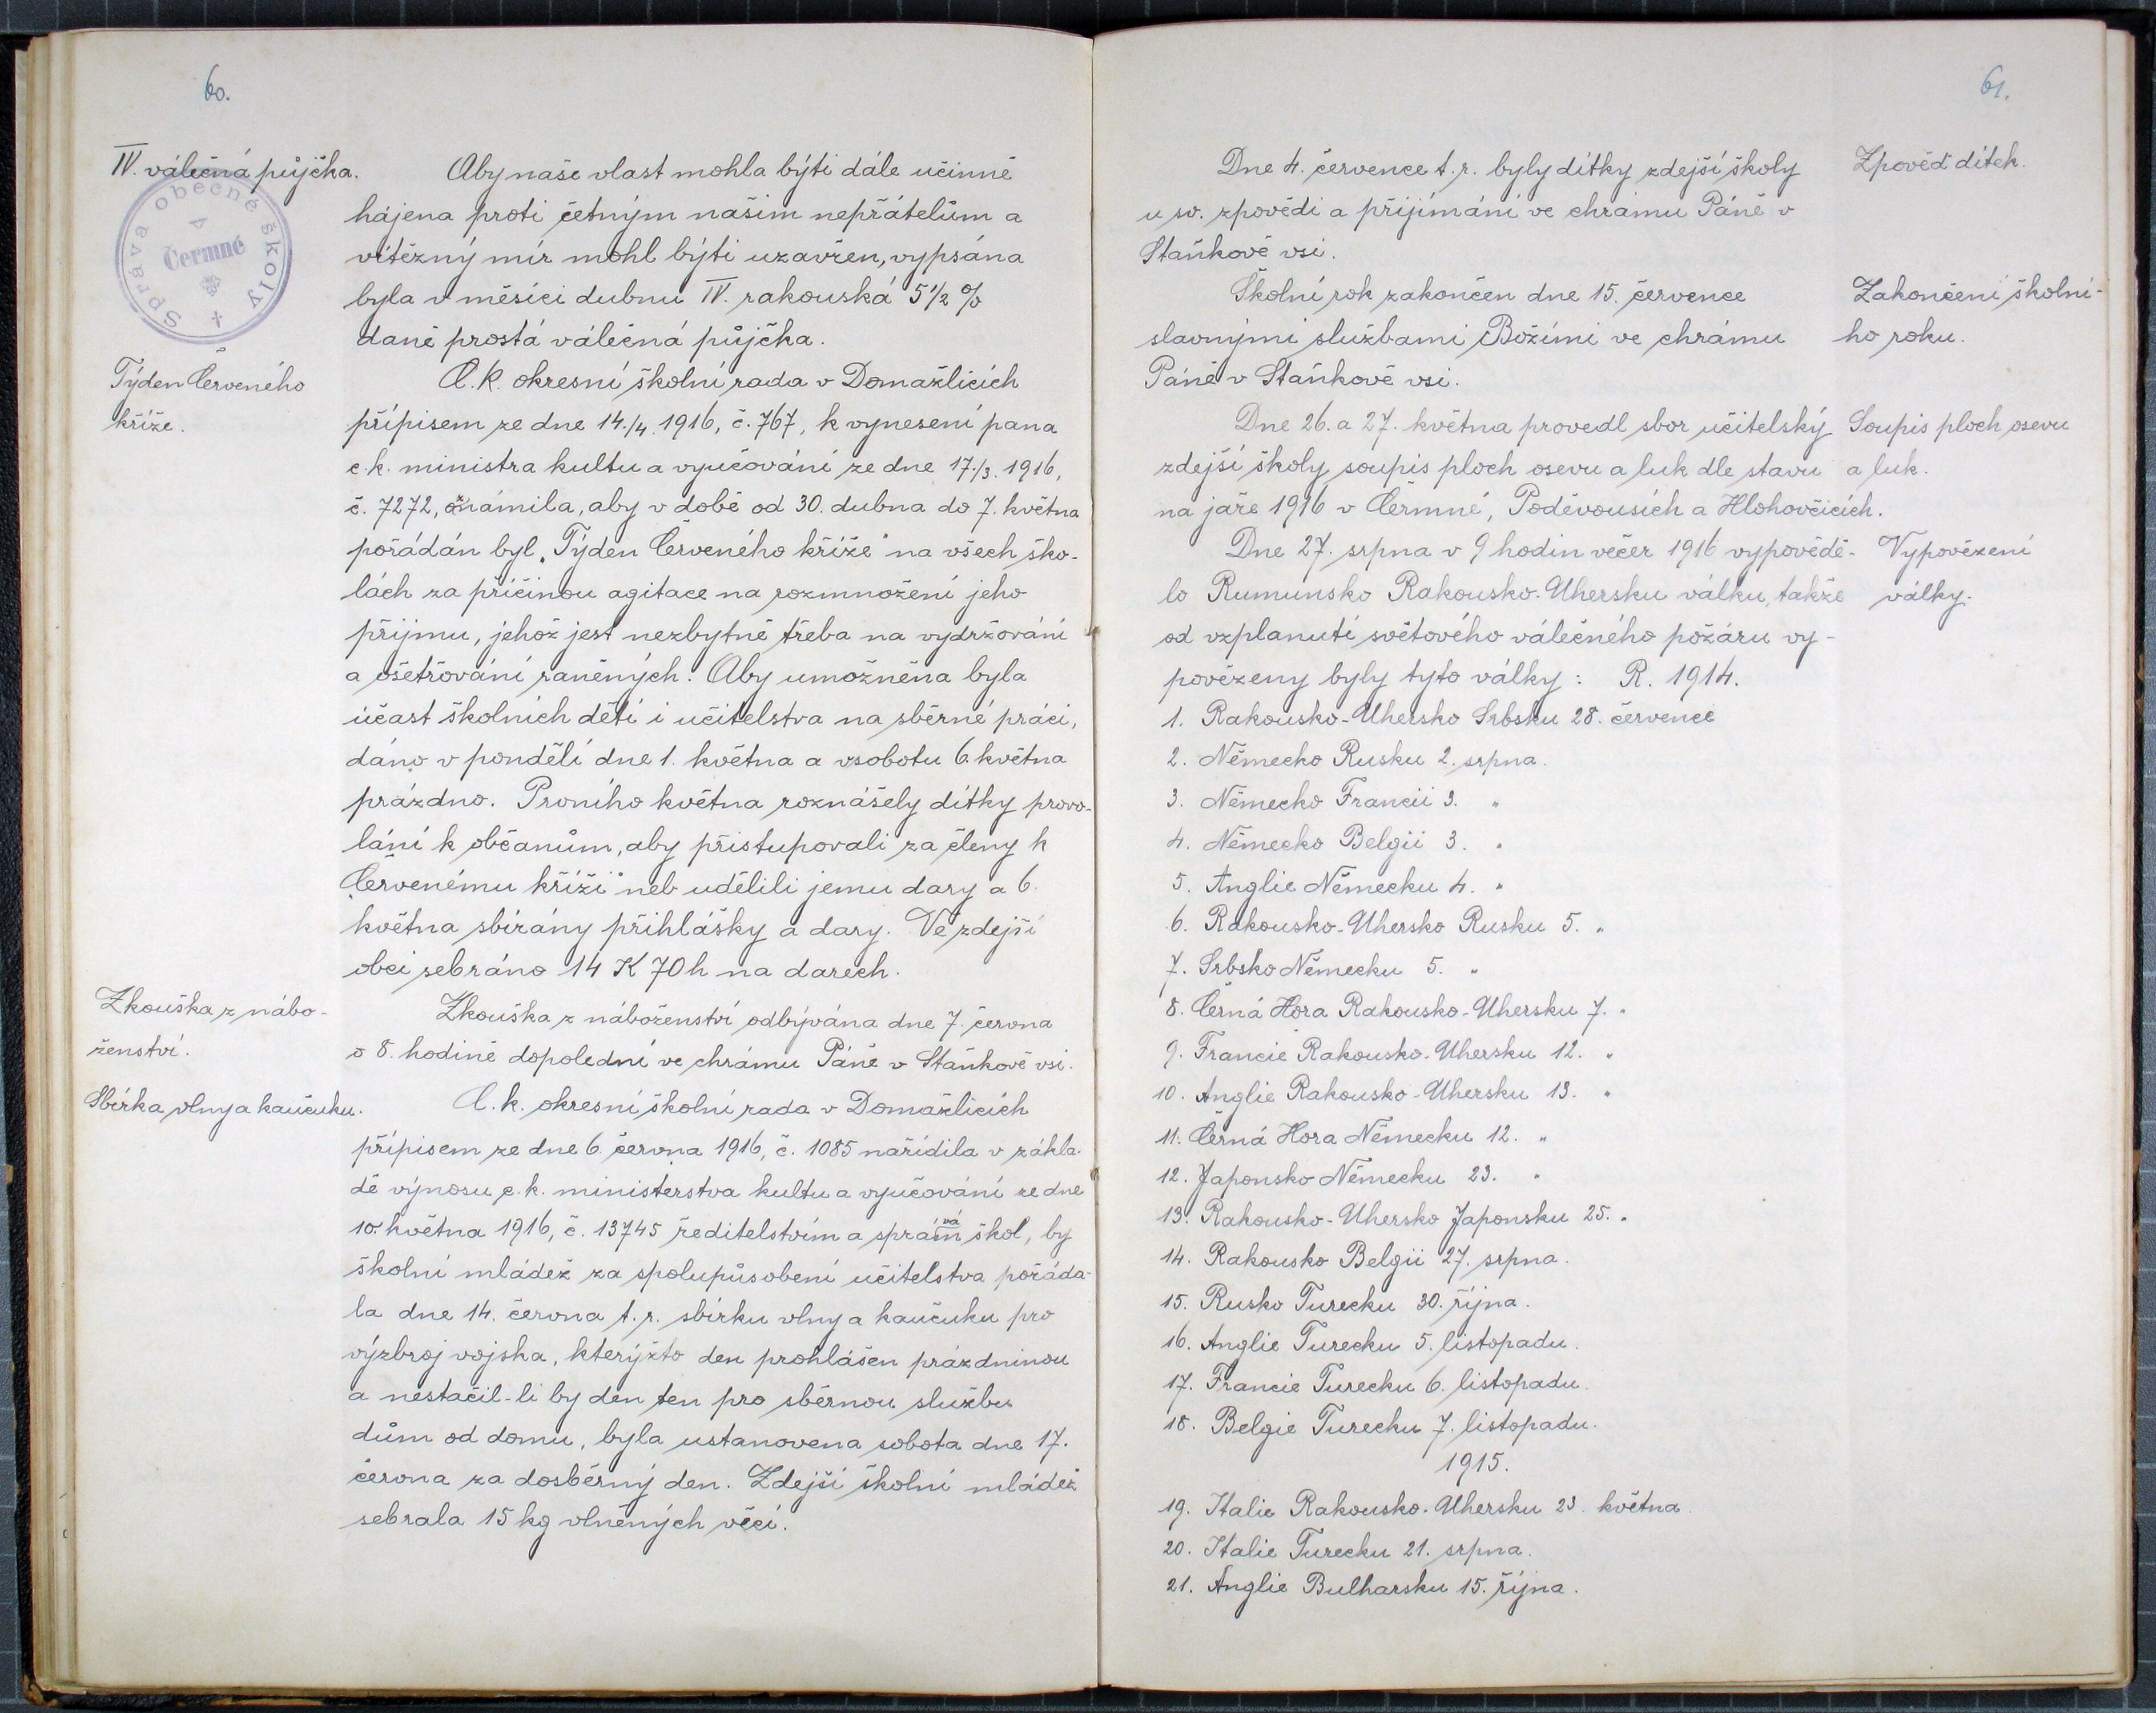 60.
IV. válečná půjčka.
Správa obecné školy
v
Čermné
Aby naše vlast mohla býti dále učinně
hájena proti četným našim nepřátelům a
vítězný mír mohl býti uzavřen, vypsána
byla v měsíci dubnu IV. rakouská 5 1/2 %
daně prostá válečná půjčka.
Týden Červeného
kříže.
C. k. okresní školní rada v Domažlicích
přípisem ze dne 14./4. 1916, č. 767, k vynesení pana
c. k. ministra kultu a vyučování ze dne 17./3. 1916,
č. 7272, oznámila, aby v době od 30. dubna do 7. května
pořádán byl „Týden Červeného kříže" na všech ško-
lách za příčinou agitace na rozmnožení jeho
příjmu, jehož jest nezbytně třeba na vydržování
a ošetřování raněných. Aby umožněna byla
účast školních dětí i učitelstva na sběrné práci,
dáno v pondělí dne 1. května a v sobotu 6. května
prázdno. Prvního května roznášely dítky provo-
lání k občanům, aby přistupovali za členy k
„Červenému kříži" neb udělili jemu dary a 6.
května sbírány přihlášky a dary. Ve zdejší
obci sebráno 14 K 70 h na darech.
Zkouška z nábo-
ženství.
Zkouška z náboženství odbývána dne 7. června
o 8. hodině dopolední ve chrámu Páně v Staňkově vsi.
Sbírka vlny a kaučuku.
C. k. okresní školní rada v Domažlicích
přípisem ze dne 6. června 1916, č. 1085 nařídila v zákla-
dě výnosu c. k. ministerstva kultu a vyučování ze dne
10. května 1916, č. 13745 ředitelstvím a správám škol, by
školní mládež za spolupůsobení učitelstva pořáda-
la dne 14. června t. r. sbírku vlny a kaučuku pro
výzbroj vojska, kterýžto den prohlášen prázdninou
a nestačil-li by den ten pro sběrnou službu
dům od domu, byla ustanovena sobota dne 17.
června za dosběrný den. Zdejší školní mládež
sebrala 15 kg vlněných věcí.
61.
Dne 4. července t. r. byly dítky zdejší školy
u sv. zpovědi a přijímání ve chrámu Páně v
Staňkově vsi.
Zpověď dítek.
Školní rok zakončen dne 15. července
slavnými službami Božími ve chrámu
Páně v Staňkově vsi.
Zakončení školní-
ho roku.
Dne 26. a 27. května provedl sbor učitelský
zdejší školy soupis ploch osevu a luk dle stavu
na jaře 1916 v Čermné, Poděvousích a Hlohovčicích.
Soupis ploch osevu
a luk.
Dne 27. srpna v 9 hodin večer 1916 vypovědě-
lo Rumunsko Rakousko-Uhersku válku, takže
od vzplanutí světového válečného požáru vy-
povězeny byly tyto války: R. 1914.
Vypovězení
války.
1. Rakousko-Uhersko Srbsku 28. července
2. Německo Rusku 2. srpna.
3. Německo Francii 3. "
4. Německo Belgii 3. "
5. Anglie Německu 4. "
6. Rakousko-Uhersko Rusku 5. "
7. Srbsko Německu 5. "
8. Černá Hora Rakousko-Uhersku 7. "
9. Francie Rakousko-Uhersku 12. "
10. Anglie Rakousko-Uhersku 13. "
11. Černá Hora Německu 12. "
12. Japonsko Německu 23. "
13. Rakousko-Uhersko Japonsku 25. "
14. Rakousko Belgii 27. srpna.
15. Rusko Turecku 30. října.
16. Anglie Turecku 5. listopadu.
17. Francie Turecku 6. listopadu.
18. Belgie Turecku 7. listopadu.
1915.
19. Italie Rakousko-Uhersku 23. května.
20. Italie Turecku 21. srpna.
21. Anglie Bulharsku 15. října.